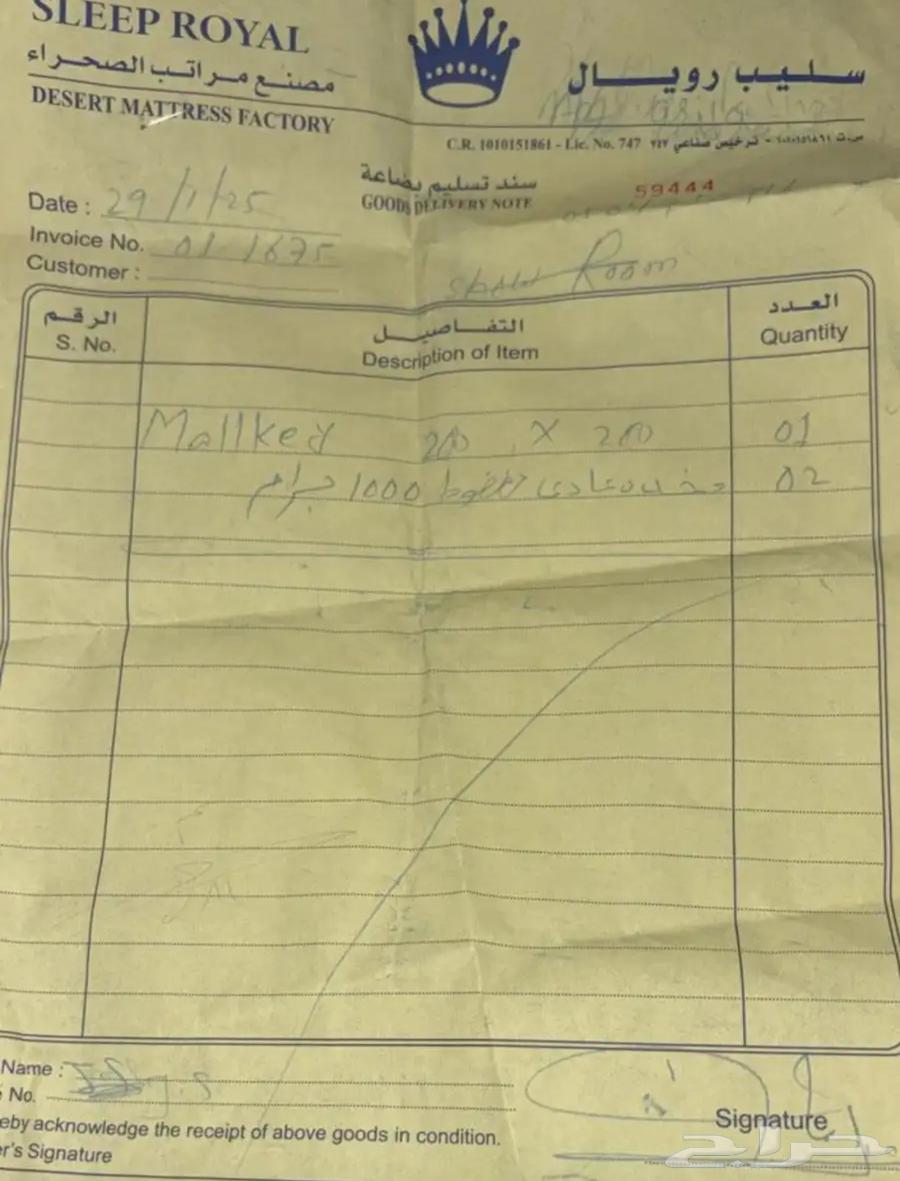 SLEEP ROYAL
سليب رويال
مصنع مراتب الصحراء
DESERT MATTRESS FACTORY
C.R. 1010151861 - Lic. No. 747 س.ت ١٠١٠١٥١٨٦١ - ترخيص صناعي ٧٤٧
سند تسليم بضاعة
GOODS DELIVERY NOTE
59444
Date : 29/1/25
Invoice No. 01-1675
Customer :
Room
الرقم التفاصيل العدد
S. No. Description of Item Quantity
Mallked 200 X 200 01
عادي 1000 جرام 02
Name :
No.
eby acknowledge the receipt of above goods in condition.
er's Signature
Signature
حراج